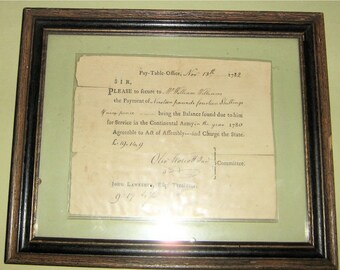 Pay-Table-Office, Nov 18th 1782
SIR,
PLEASE to secure to Mr William Williams
the Payment of Nineteen pounds fourteen Shillings
being the Balance found due to him
for Service in the Continental Army for the year 1780
Agreeable to Act of Assembly and Charge the State.
Committee
JOHN LAWRENCE, Esq; Treasurer